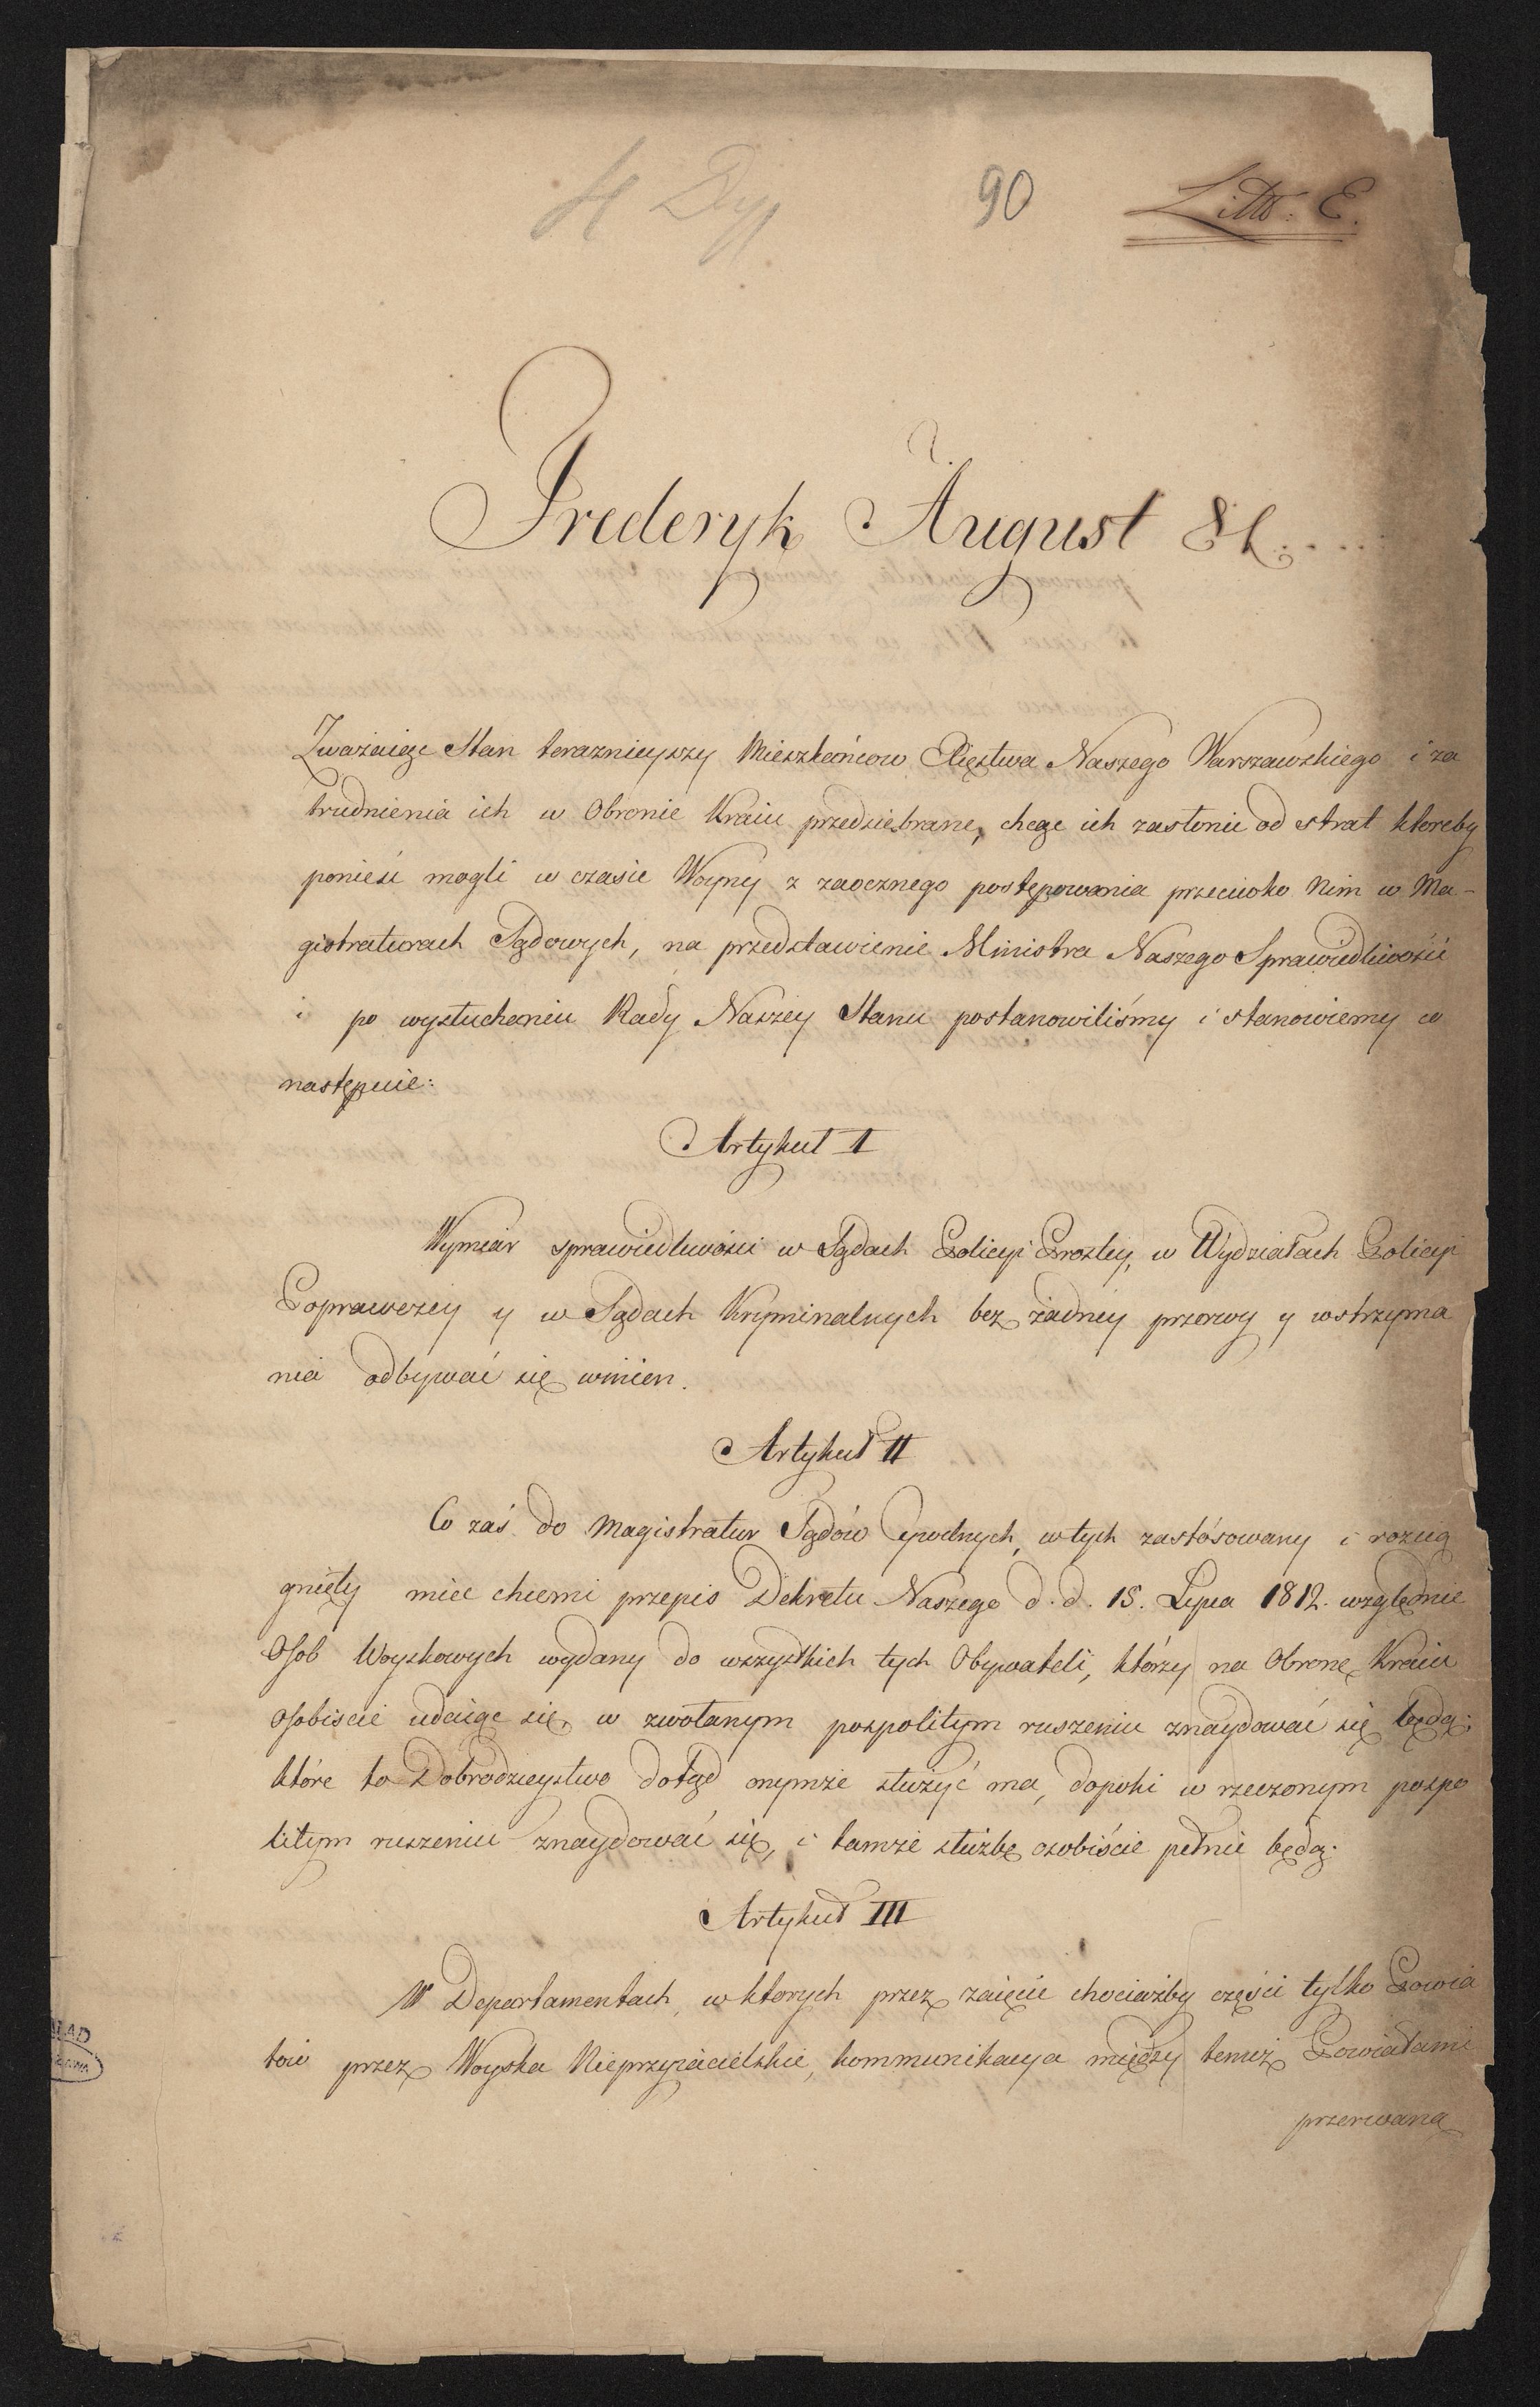 90
Litt: E.
Frederyk August &c....
Zważaiąc Stan teraznieyszy Mieszkańcow Xięstwa Naszego Warszawskiego i za
trudnienia ich w Obronie Kraiu przedsiebrane, chcąc ich zasłonić od strat ktoreby
ponieść mogli w czasie Woyny z zaocznego postępowania przeciwko Nim w Ma-
gistraturach Sądowych, na przedstawienie Ministra Naszego Sprawiedliwości
i po wysłuchaniu Rady Naszey Stanu postanowiliśmy i stanowiemy co
następuie:
Artykuł I
Wymiar sprawiedliwości w Sądach Policyi Prostey, w Wydziałach Policyi
Poprawczey y w Sądach Kryminalnych bez żadney przerwy y wstrzyma
nia odbywać się winien.
Artykuł II
Co zaś do Magistratur Sądów Cywilnych, w tych zastósowany i rozcią
gnięty mieć chcemi przepis Dekretu Naszego d. d. 18. Lipca 1812. względnie
Osob Woyskowych wydany do wszystkich tych Obywateli, którzy na Obronę Kraiu
osobiscie udaiąc się, w zwołanym pospolitym ruszeniu znaydować się będą;
które to Dobrodzieystwo dotąd onymże służyć ma, dopoki w rzeczonym pospo
litym ruszeniu znaydować się, i tamże służbę osobiście pełnić będą.
Artykuł III
W Departamentach, w ktorych przez zaięcie chociażby części tylko Powia
tów przez Woyska Nieprzyiacielskie, kommunikacya między temiż Powiatami
przerwana